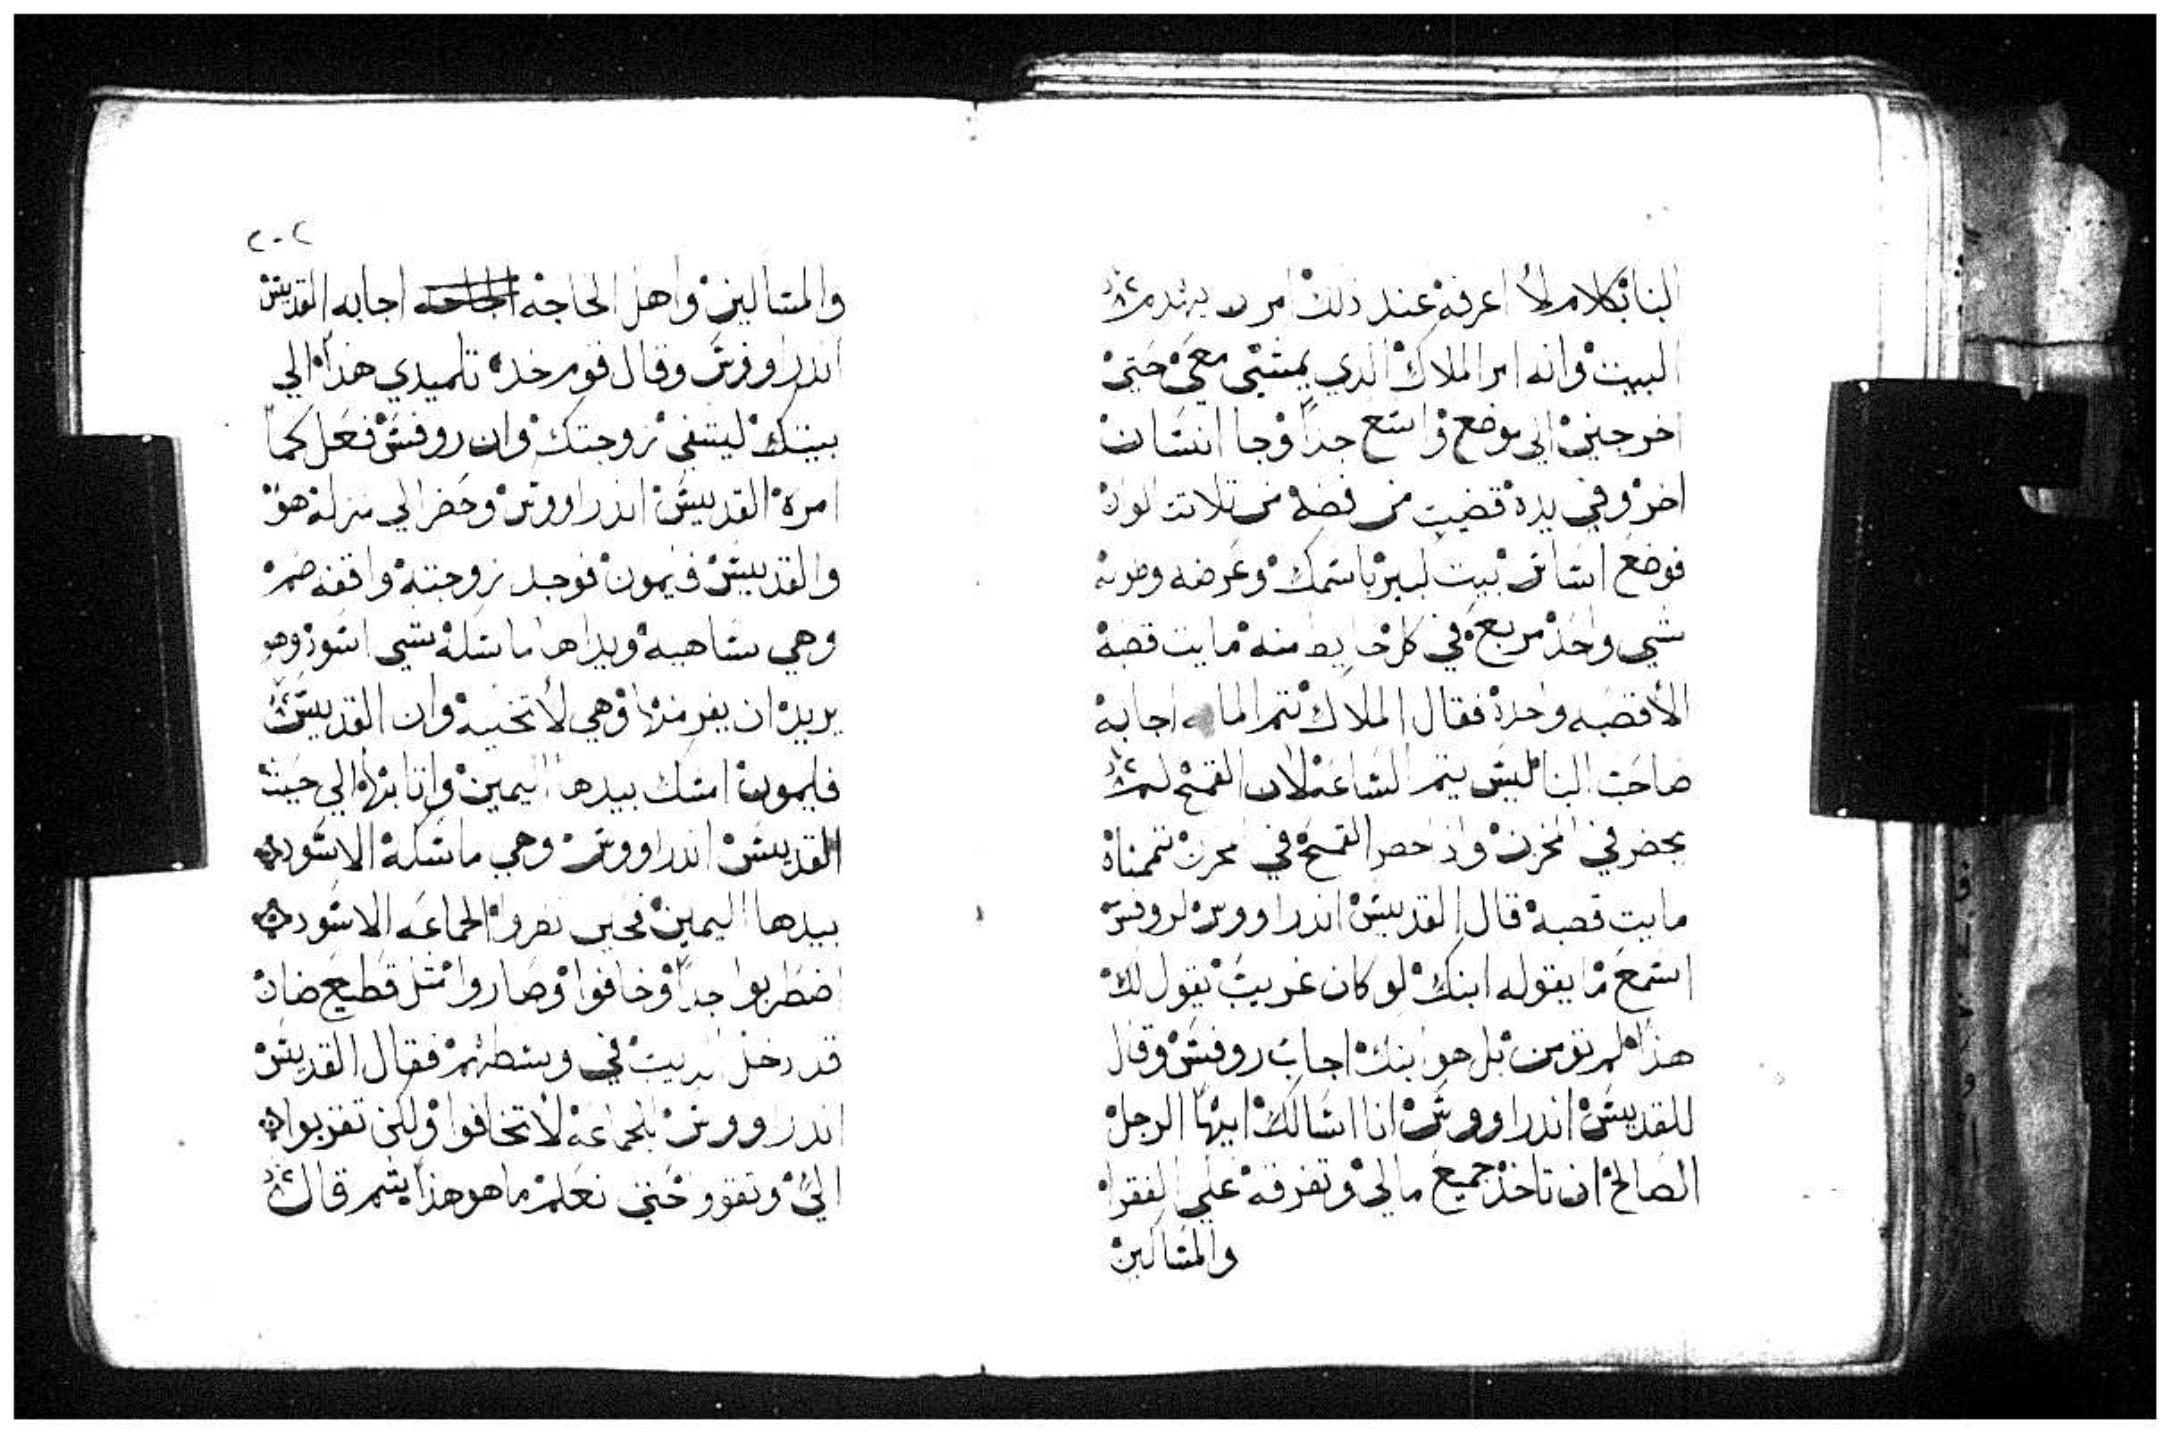 البنا بكلام لا اعرفه عند ذلك امر ان يهدم
البيت وانه امر الملاك الذي يمشي معي حتي
اخرجني الي موضع واسع جداً وجا انسان
اخر وفي يده قضيب من فضه من تلاتت الوان
فوضع اساس بيت كبير باسمك وعرضه وطوله
شي واحد مربع في كل حايط منه مايت قصبه
الا قصبه واحده فقال الملاك تتم المايه اجابه
صاحب البنا ليس يتم الساعه لان القمح لم
يحضر في المخزن واذ احضر القمح في مخزن تممناه
مايت قصبه قال القديس اندراووس لروفس
اسمع ما يقوله ابنك لو كان غريب يقول لك
هذا لم تومن بل هو ابنك اجاب روفس وقال
للقديس اندراووس انا اسالك ايها الرجل
الصالح ان تاخذ جميع مالي وتفرقه علي الفقرا
والمساكين
٢٠٢
والمساكين واهل الحاجه اجابه القديس
اندراووس وقال قوم خذ تلميدي هذا الي
بيتك ليشفي زوجتك وان روفس فعل كما
امره القديس اندراووس وحضر الي منزله هو
والقديس فليمون فوجد زوجته واقفه صنم
وهي شاهيه ويداها ماسكه شي اسود وهو
يريد ان يفر منها وهي لا تخليه وان القديس
فليمون امسك بيدها اليمين واتا بها الي حيت
القديس اندراووس وهي ماسكة الاسود
بيدها اليمين فحين نظروا الجماعه الاسود
اضطربوا جداً وخافوا وصاروا متل قطيع ضان
قد دخل الديب في وسطهم فقال القديس
اندراووس للجماعه لا تخافوا ولكن تقربوا
اليّ وتقووا حتي نعلم ما هو هذا يتم قال